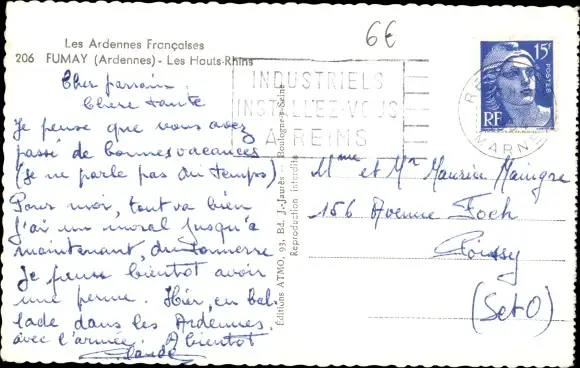 6€
Les Ardennes Françaises
206 FUMAY (Ardennes) - Les Hauts-Rhins
Cher parrain,
Chère tante
Je pense que vous avez
passé de bonnes vacances
(je ne parle pas du temps)
Pour moi, tout va bien
j'ai un moral jusqu'à
maintenant, du tonnerre
Je pense bientot avoir
une perme. Hier, en bal
lade dans les Ardennes.
avec l'armée. A bientot
Claude
Éditions ATMO, 93, Bd. J.-Jaurès - Boulogne-s-Seine
Reproduction interdite
INDUSTRIELS
INSTALLEZ-VOUS
A REIMS
MARNE
15F
POSTES
RF
Mme et Mr Maurice
156 Avenue Foch
(S et O)